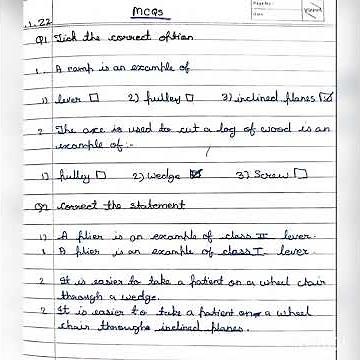 MCQs
Page No.:
Date:
1.22
Q1 Tick the correct option
1. A ramp is an example of
1) lever ☐ 2) pulley ☐ 3) inclined planes ☑
2 The axe is used to cut a log of wood is an
example of:-
1) pulley ☐ 2) wedge ☑ 3) Screw ☐
Q2 Correct the statement
1) A plier is an example of class II lever.
1 A plier is an example of class I lever.
2 It is easier to take a patient on a wheel chair
through a wedge.
2 It is easier to take a patient on a wheel
chair through inclined planes.